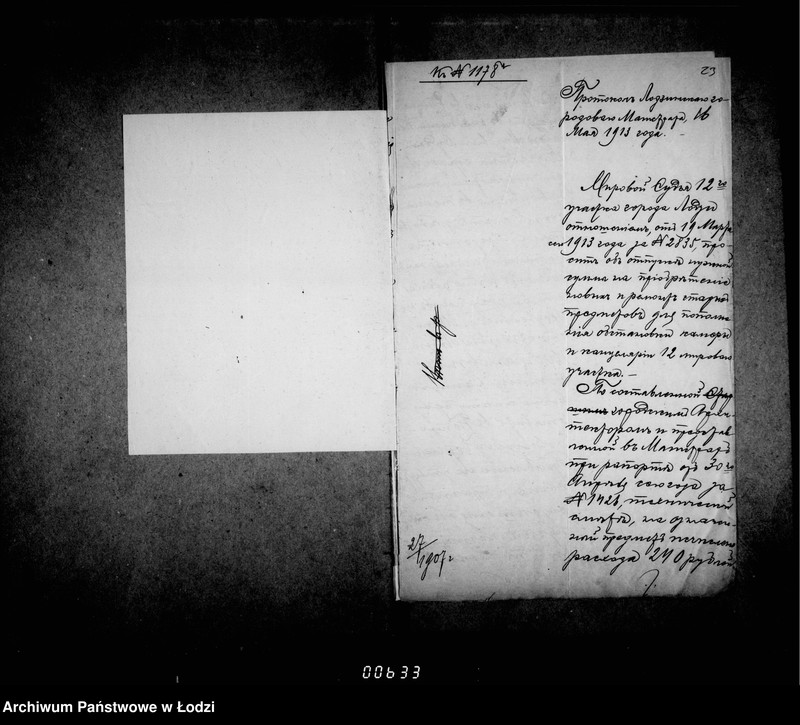 К № 1178
23
Протоколъ Лодзинскаго го-
родового Магистрата, 16
Мая 1913 года. -
Мировой Судья 12го
участка города Лодзи
отношеніемъ, отъ 19 Марта
сего 1913 года за № 2835, про-
ситъ объ отпускѣ нужной
суммы на пріобрѣтеніе
новыхъ и ремонтъ старыхъ
предметовъ для пополне-
нія обстановки камеры
и канцеляріи 12 мирового
участка. -
По составленной
городскимъ Архи-
текторомъ и представ-
ленной въ Магистратъ
при рапортѣ отъ 30го
Апрѣля сего года за
№ 1421, технической
смѣтѣ, на означен-
ной предметъ исчислено
расхода 240 рублей
27/1907 г
00633
Archiwum Państwowe w Łodzi